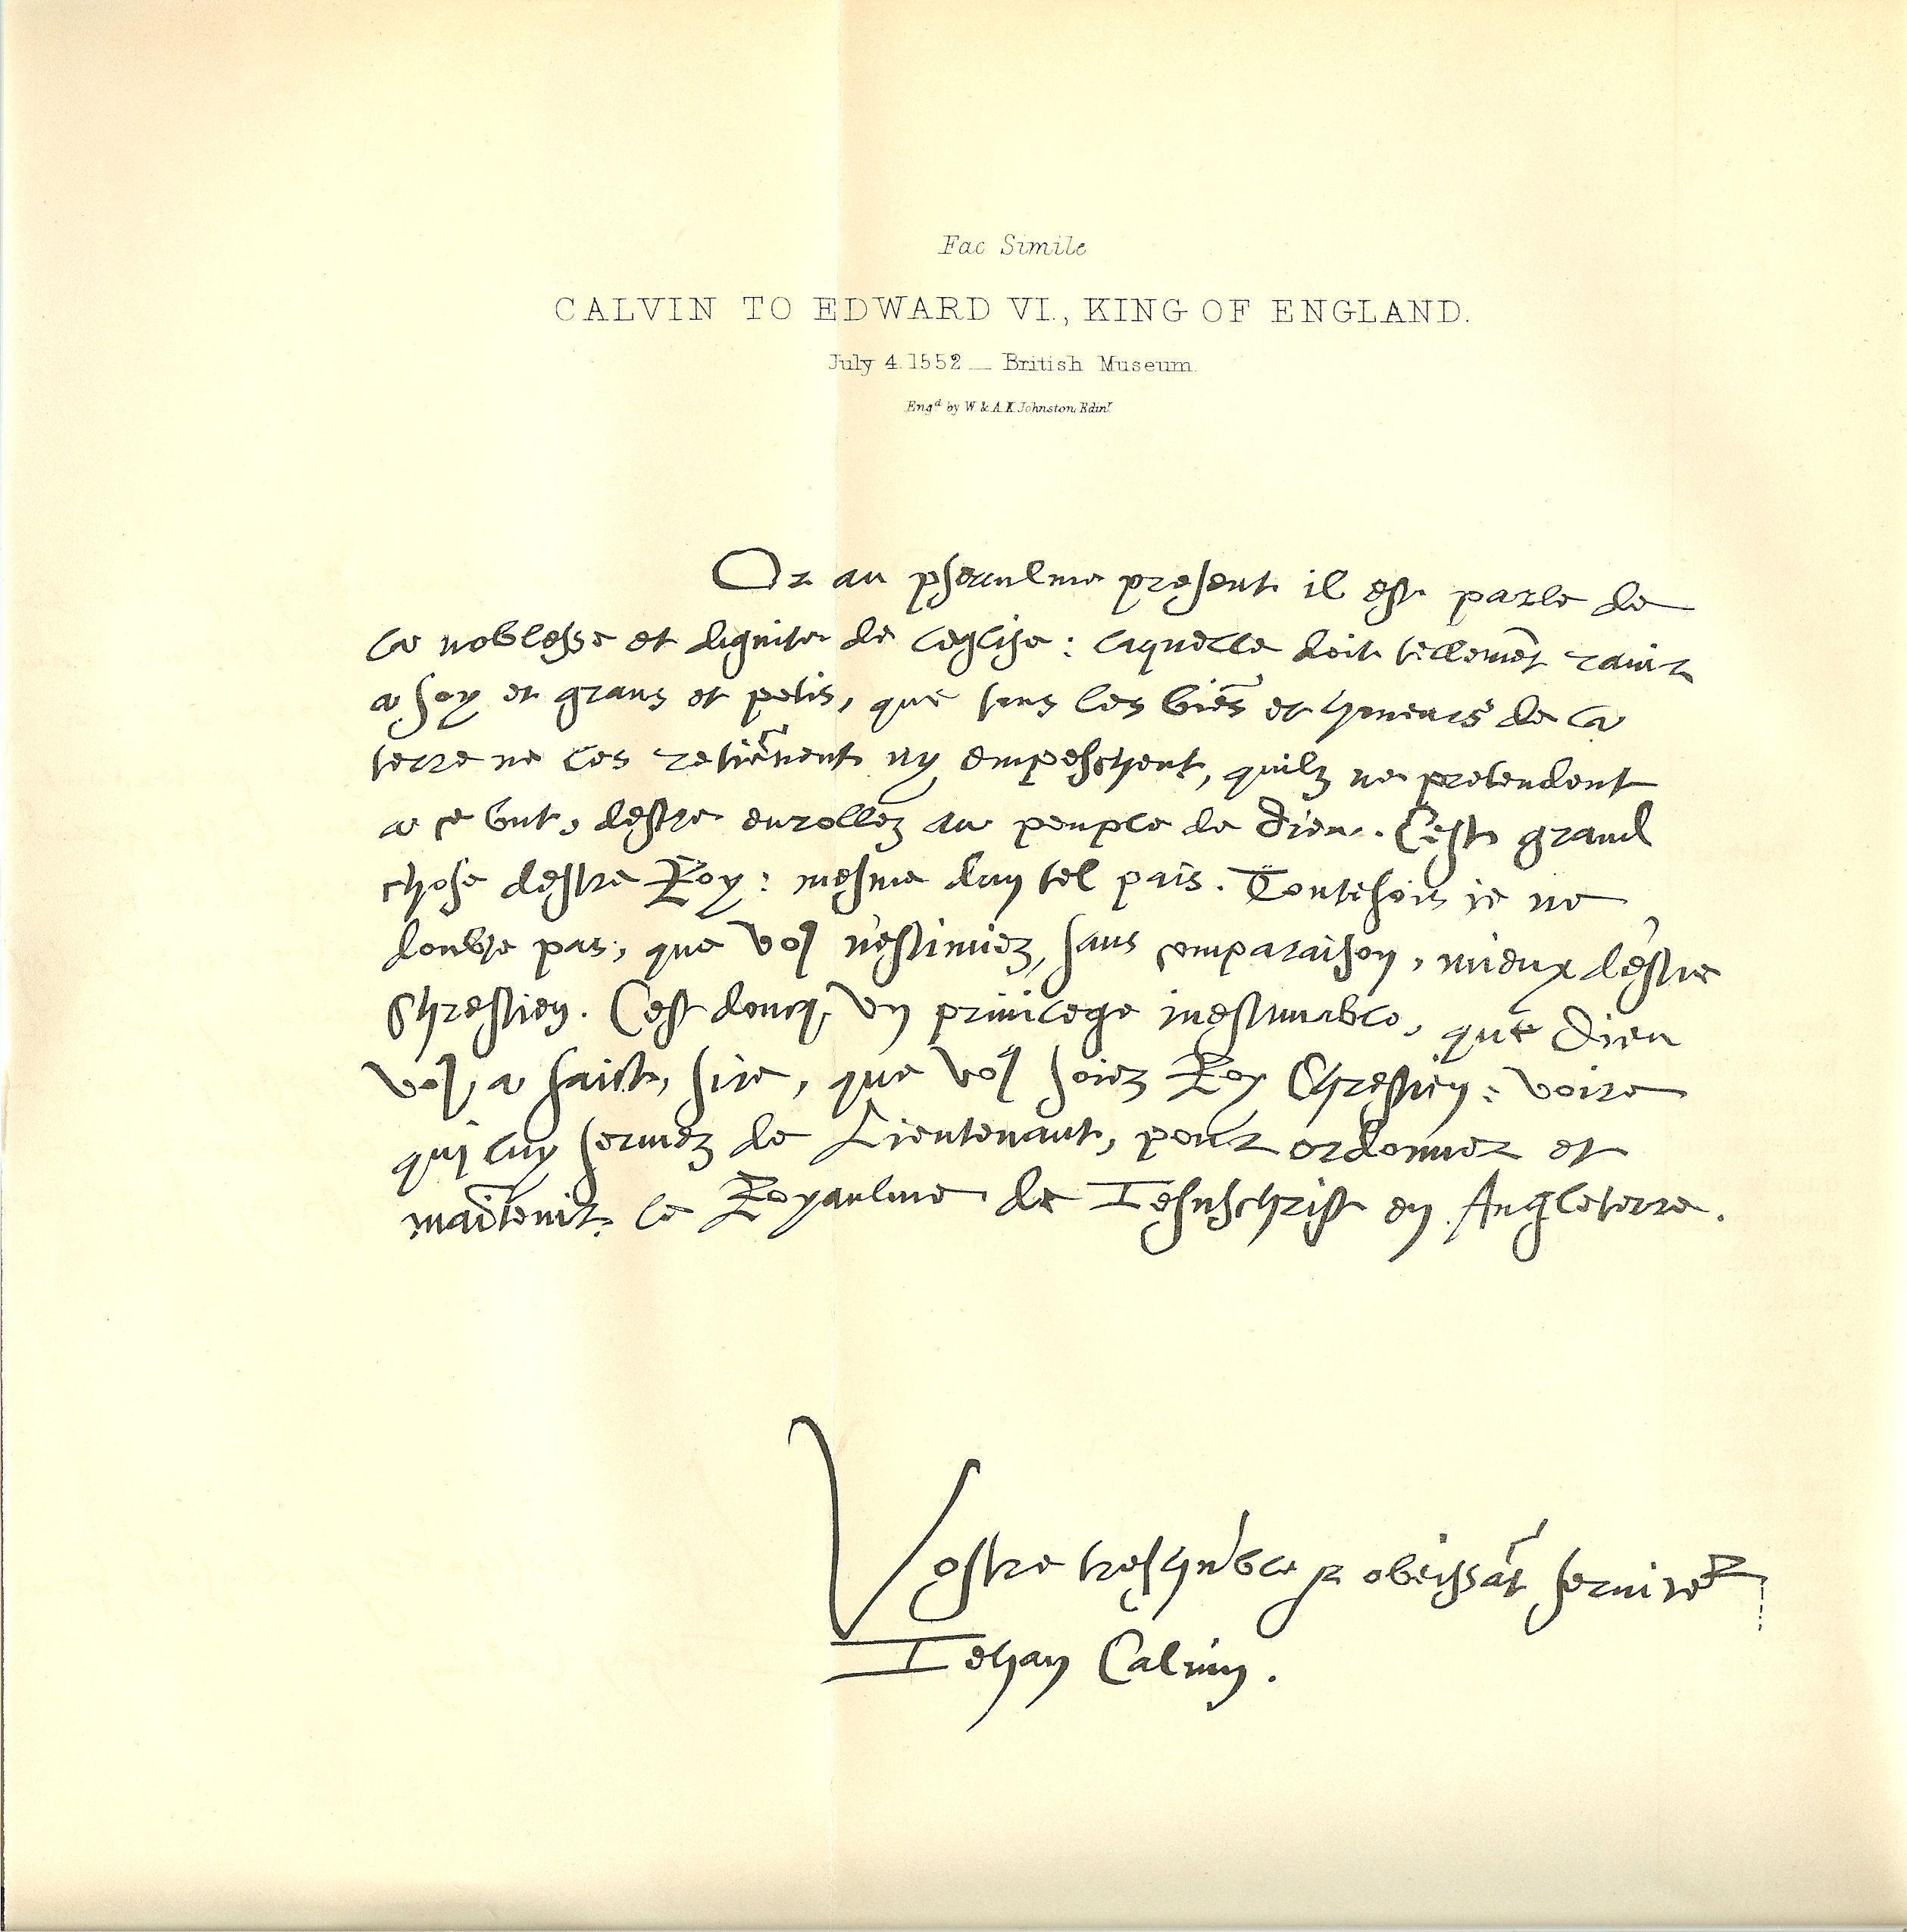 Fac Simile
CALVIN TO EDWARD VI., KING OF ENGLAND.
July 4. 1552 — British Museum.
Engd by W. & A. K. Johnston, Edinr.
Or au pseaulme present il est parle de
la noblesse et dignite de leglise: laquelle doit tellemēt rauir
a soy et grans et petis, que tous les biēs et honeurs de la
terre ne les retiēnent ny empeschent, quilz ne pretendent
a ce but, destre enrollez au peuple de Dieu. Cest grand
chose destre Roy: mesme dun tel païs. Toutesfois ie ne
doubte pas, que vo9 n'estimiez, sans comparaison, mieux d'estre
Chrestien. Cest doncq un priuilege inestimable, que Dieu
vo9 a faict, sire, que vo9 soiez Roy Chrestien: voire
qui luy seruiez de Lieutenant, pour ordonner et
maītenir le Royaulme de Iesuschrist en Angleterre.
Vostre treshūble et obeissāt seruiteur
Iehan Caluin.